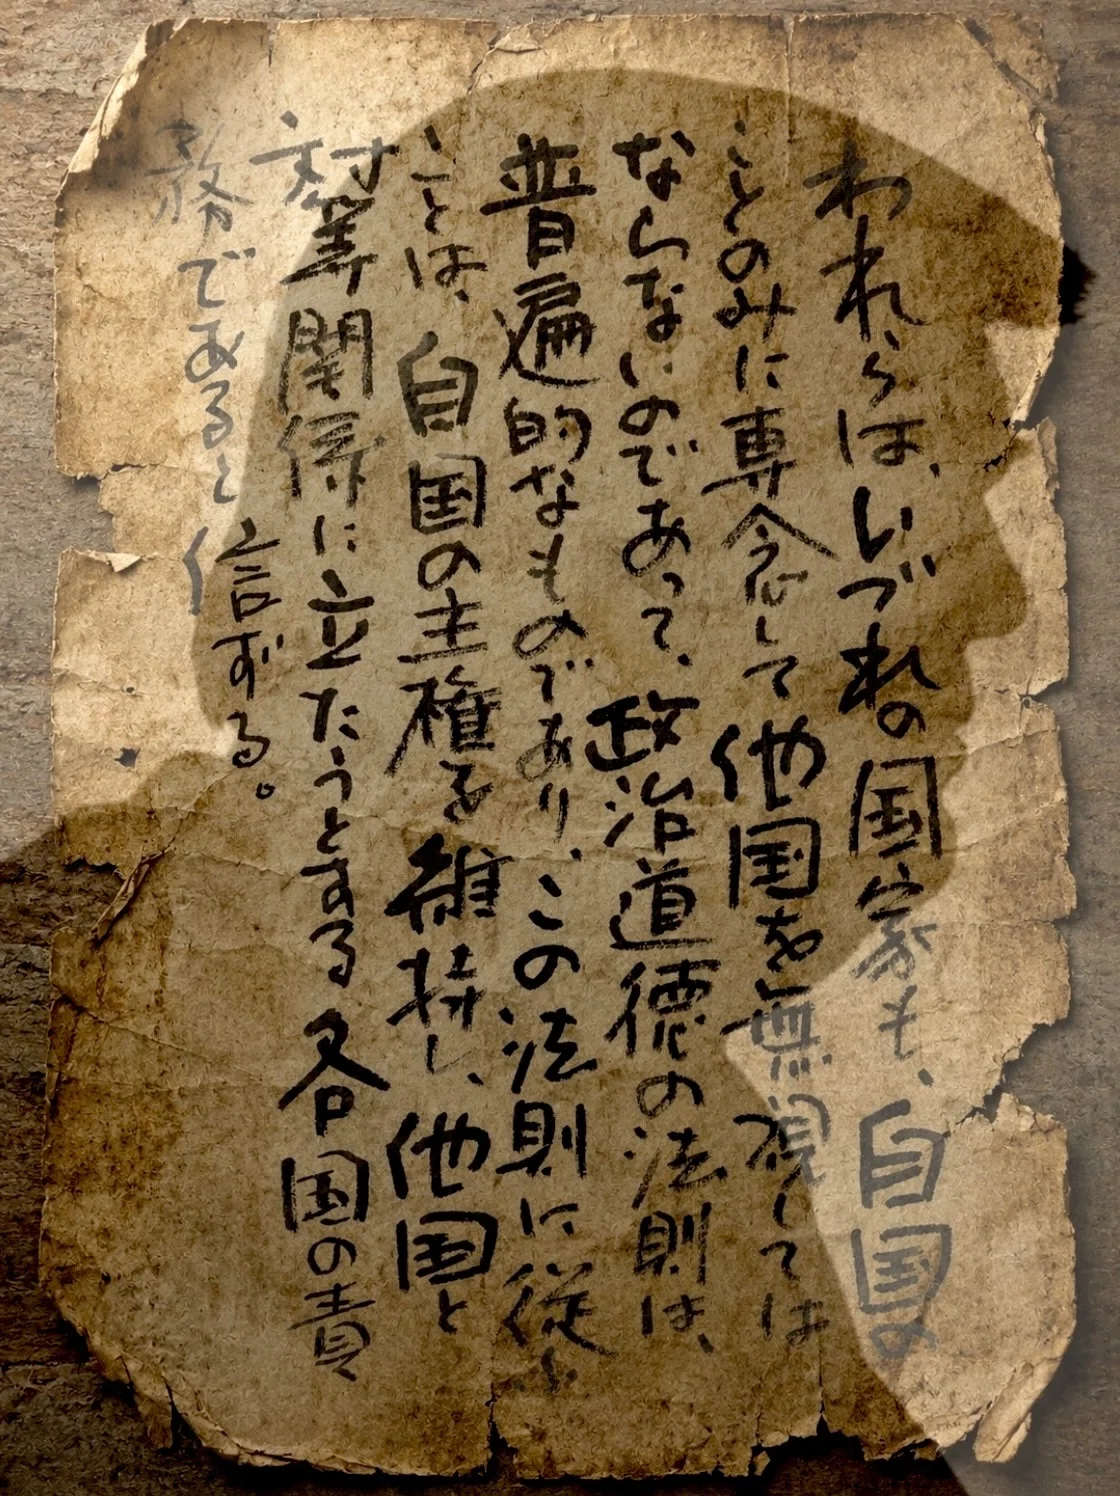 われらは、いづれの国家も、自国の
ことのみに専念して他国を無視しては
ならないのであつて、政治道徳の法則は、
普遍的なものであり、この法則に従ふ
ことは、自国の主権を維持し、他国と
対等関係に立たうとする各国の責
務であると信ずる。